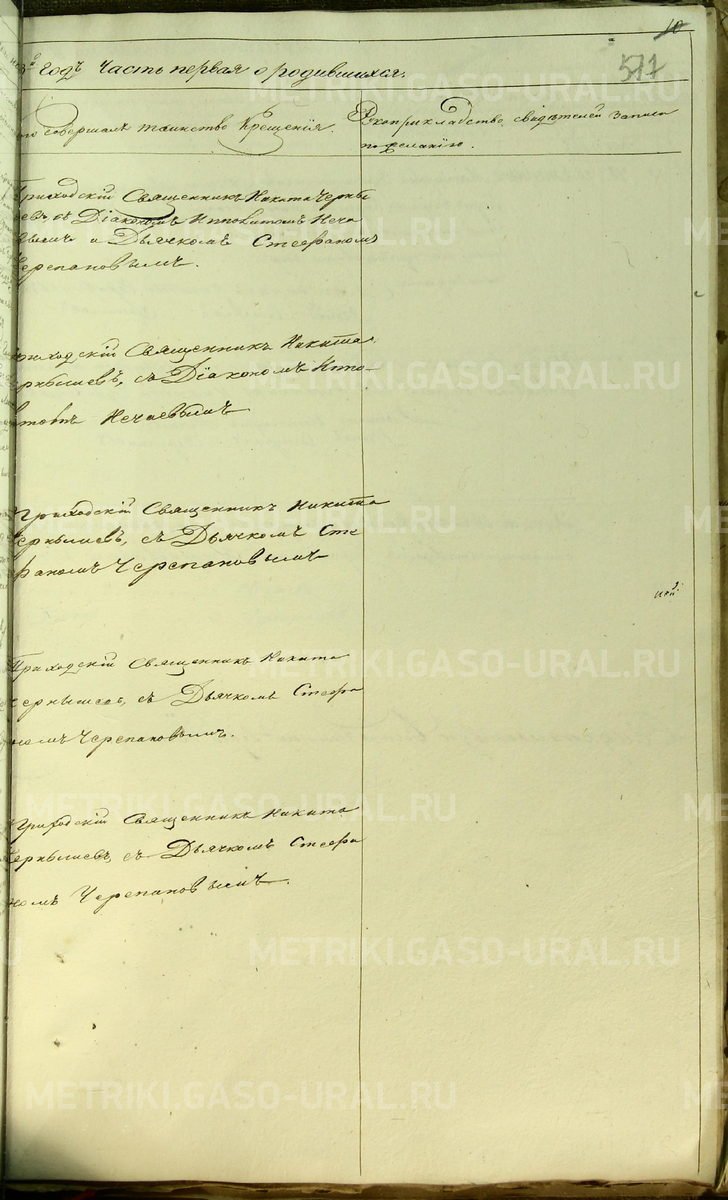 10
577
годъ Часть первая о родившихся.
совершалъ таинство Крещенія.
Рукоприкладство свидѣтелей записи
по желанію.
Приходскій Священникъ Никита Черны
шевъ съ Діакономъ Ипполитомъ Неча
евымъ и Дьячкомъ Стефаномъ
Черепановымъ.
Приходскій Священникъ Никита
Чернышевъ, съ Діакономъ Иппо-
литомъ Нечаевымъ
Приходскій Священникъ Никита
Чернышевъ, съ Дьячкомъ Сте
фаномъ Черепановымъ
Приходскій Священникъ Никита
Чернышевъ, съ Дьячкомъ Стефа
номъ Черепановымъ.
Приходскій Священникъ Никита
Чернышевъ, съ Дьячкомъ Стефа
номъ Черепановымъ.
METRIKI.GASO-URAL.RU